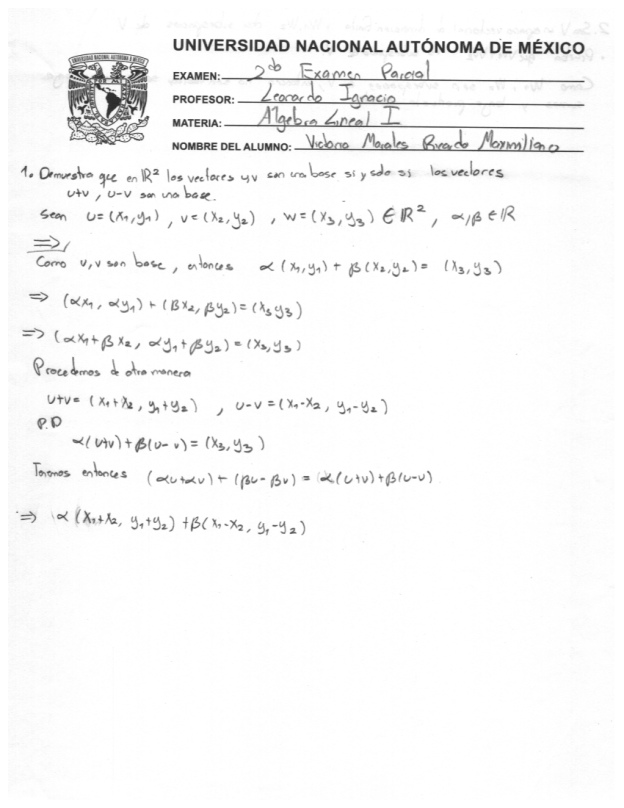 UNIVERSIDAD NACIONAL AUTÓNOMA DE MÉXICO
EXAMEN: 2do Examen Parcial
PROFESOR: Leonardo Ignacio
MATERIA: Algebra Lineal I
NOMBRE DEL ALUMNO: Victoria Morales Ricardo Maximiliano
1. Demuestra que en ℝ² los vectores u y v son una base si y solo si los vectores
u+v, u-v son una base.
Sean u=(x₁,y₁), v=(x₂,y₂), w=(x₃,y₃) ∈ ℝ², α,β ∈ ℝ
⟹/
Como u,v son base, entonces α(x₁,y₁) + β(x₂,y₂) = (x₃,y₃)
⟹ (αx₁, αy₁) + (βx₂, βy₂) = (x₃,y₃)
⟹ (αx₁+βx₂, αy₁+βy₂) = (x₃,y₃)
Procedemos de otra manera
u+v = (x₁+x₂, y₁+y₂), u-v = (x₁-x₂, y₁-y₂)
P.D
α(u+v)+β(u-v) = (x₃,y₃)
Tomamos entonces (αu+αv) + (βu-βv) = α(u+v)+β(u-v)
⟹ α(x₁+x₂, y₁+y₂) + β(x₁-x₂, y₁-y₂)